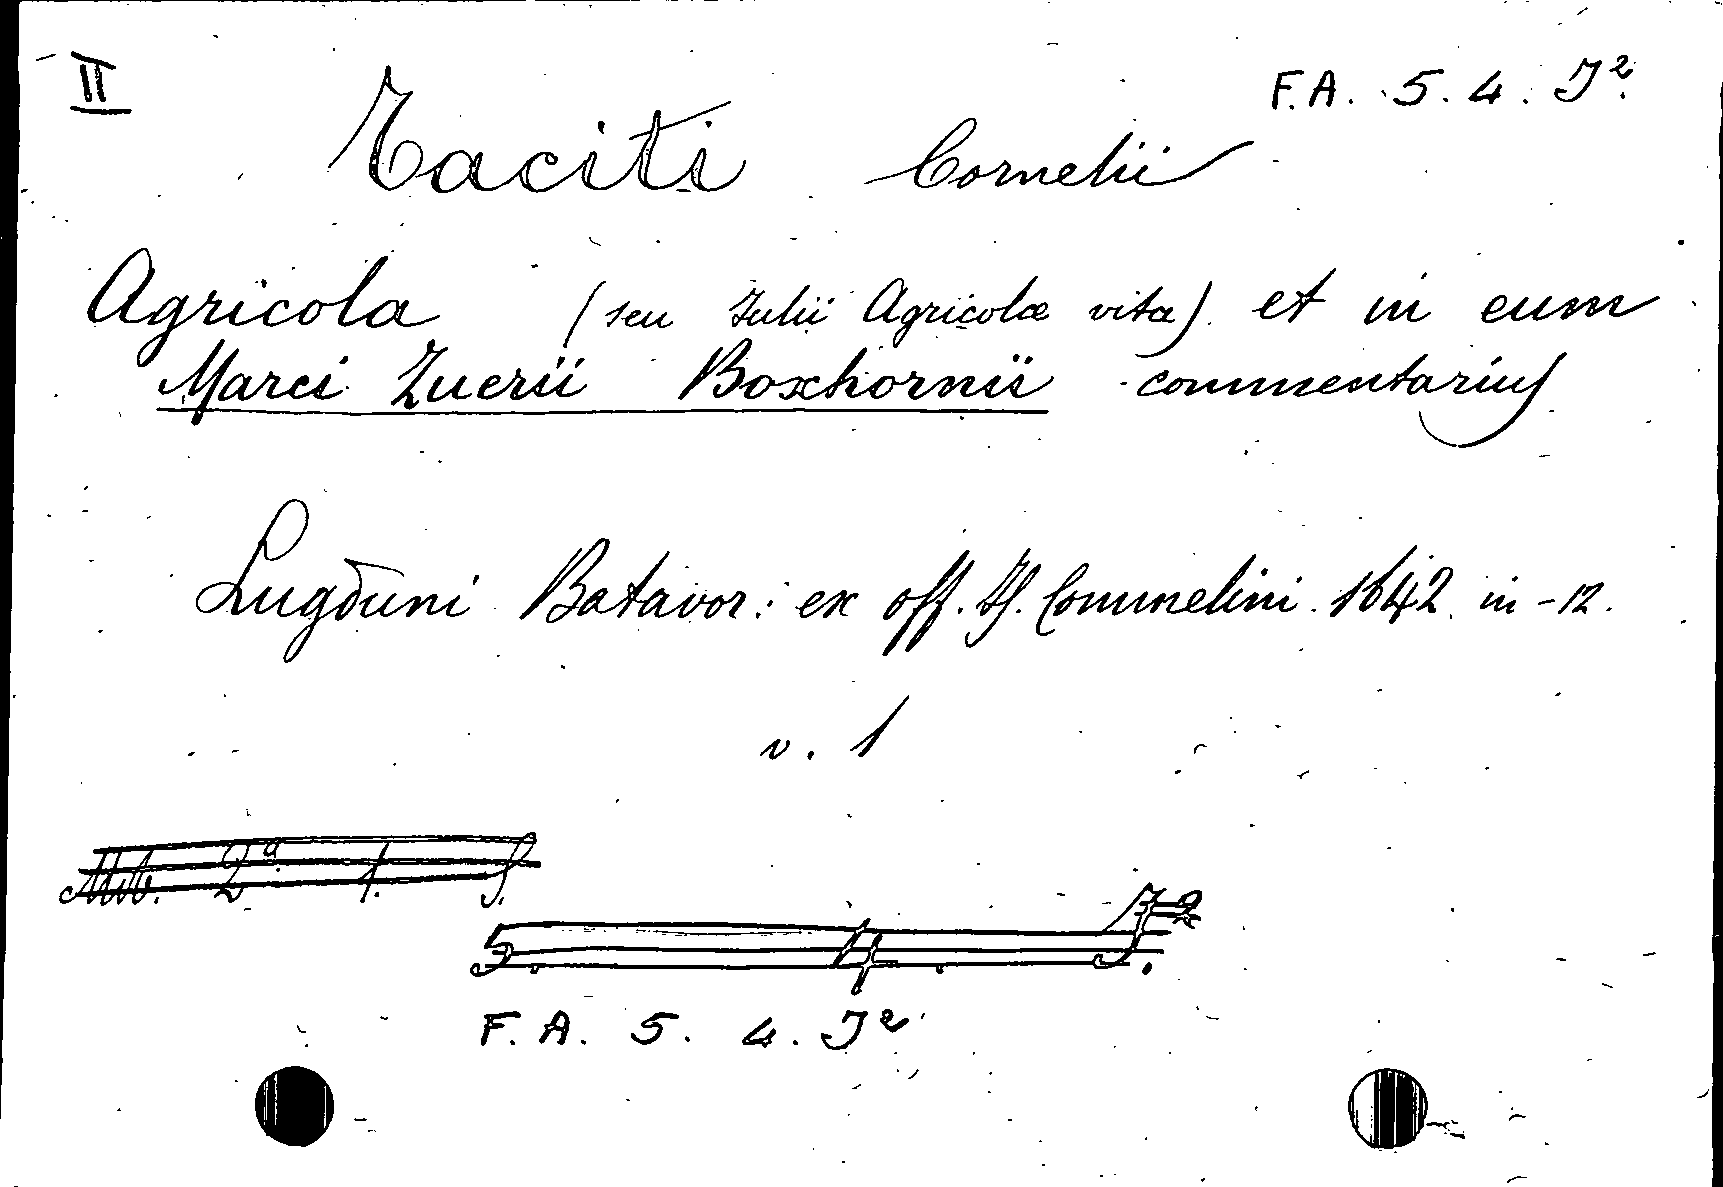 II
F.A. 5. 4. J².
Taciti Cornelii
Agricola (seu Julii Agricolæ vita) et in eum
Marci Zuerii Boxhornii commentarius
Lugduni Batavor: ex off. H. Commelini. 1642. in-12.
v. 1
2ª 1. J.
5. 4. J².
F. A. 5. 4. J²